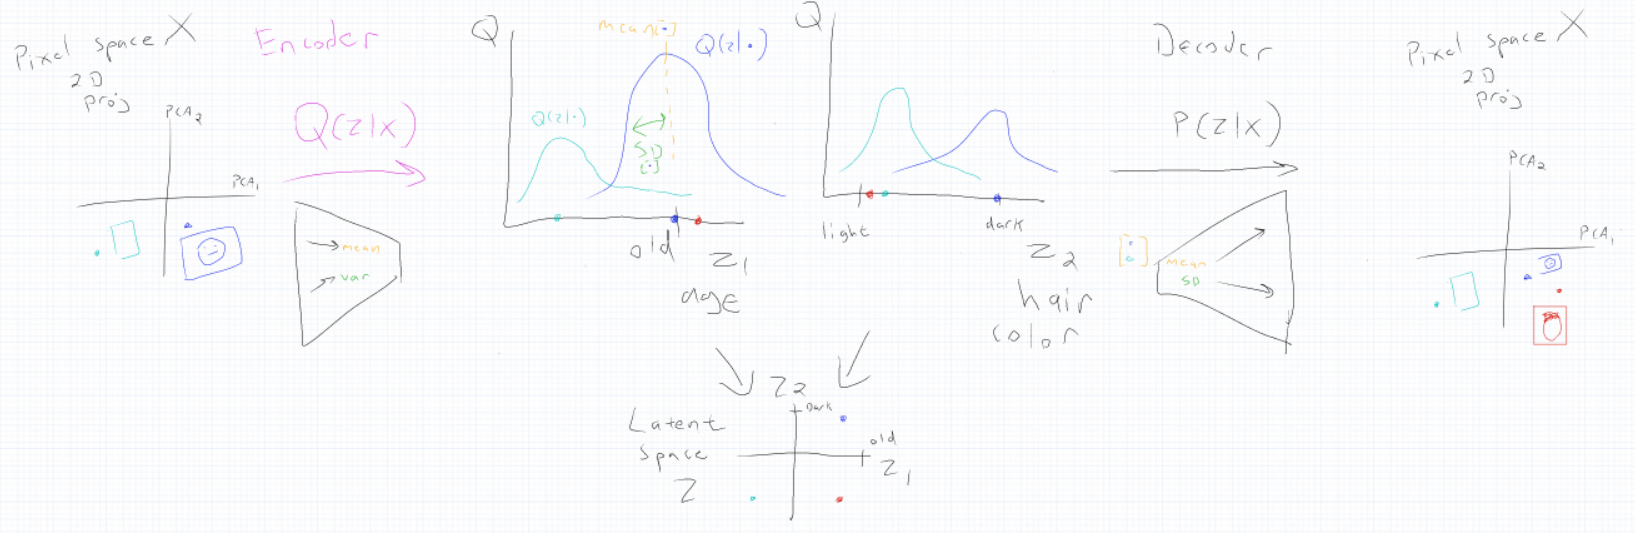 Pixel space X
2D
proj
PCA2
PCA1
Encoder
Q(z|x)
mean
var
Q
mean[·]
Q(z|·)
Q(z|·)
SD
[·]
old
Z1
age
Q
light
dark
Z2
hair
color
Decoder
P(z|x)
[:]
mean
SD
Pixel space X
2D
proj
PCA2
PCA1
Latent
space
Z
Z2
Dark
old
Z1